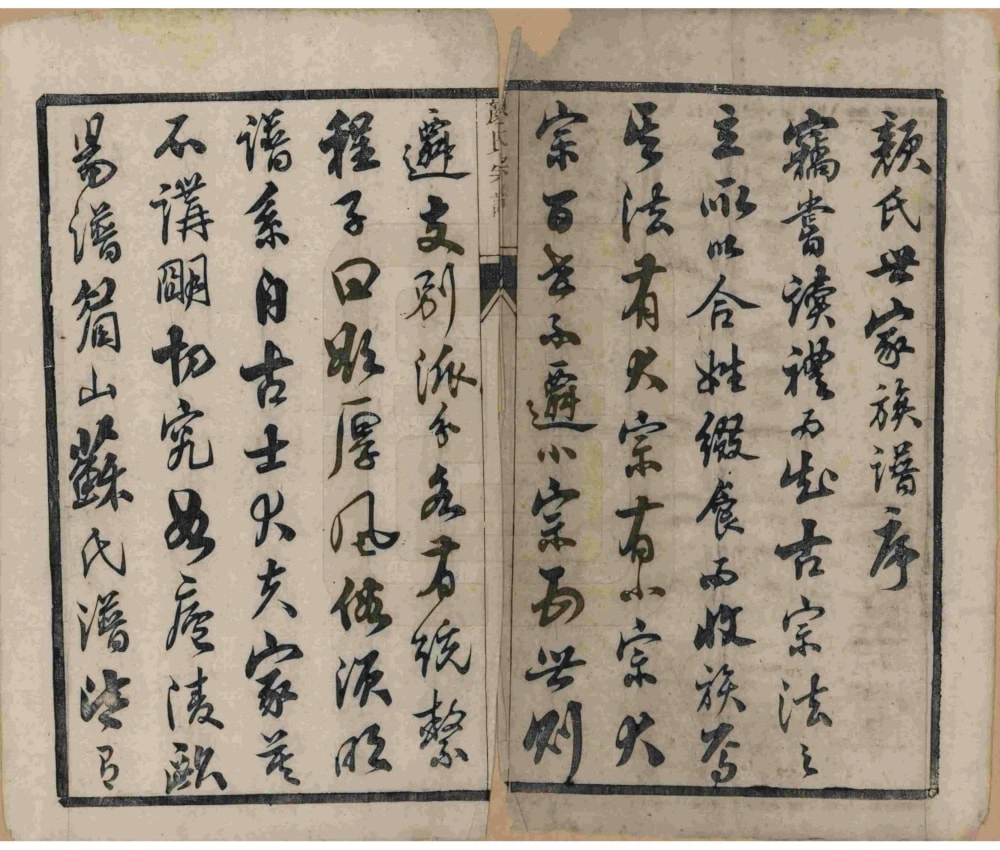 顏氏世家族譜序
竊嘗讀禮而知古宗法之
立所以合姓綴食而收族焉
其法有大宗有小宗大
宗百世不遷小宗五世則
氏宗譜
遷支別派分各有統繫
程子曰欲厚風俗須明
譜系自古士大夫家莫
不講朙切究如廬陵歐
昜譜眉山蘇氏譜